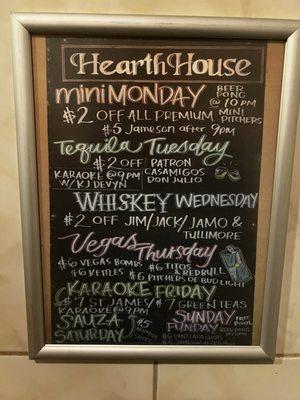 HearthHouse
mini MONDAY
BEER PONG @ 10 PM
$2 OFF ALL PREMIUM
MINI PITCHERS
$5 Jameson after 9pm
Tequila Tuesday
$2 OFF PATRON
CASAMIGOS
DON JULIO
KARAOKE @9PM
W/ KJ DEVYN
WHISKEY WEDNESDAY
$2 OFF JIM/JACK/JAMO &
TULLIMORE
Vegas Thursday
$6 VEGAS BOMBS
$6 TITOS & REDBULL
$6 KETTLES
$6 PITCHERS OF BUD LIGHT
KARAOKE FRIDAY
$7 ST JAMES/ $7 GREEN TEAS
KARAOKE @9PM
SAUZA
SATURDAY
$5
SUNDAY
FUNDAY
FREE POOL
BEER PONG